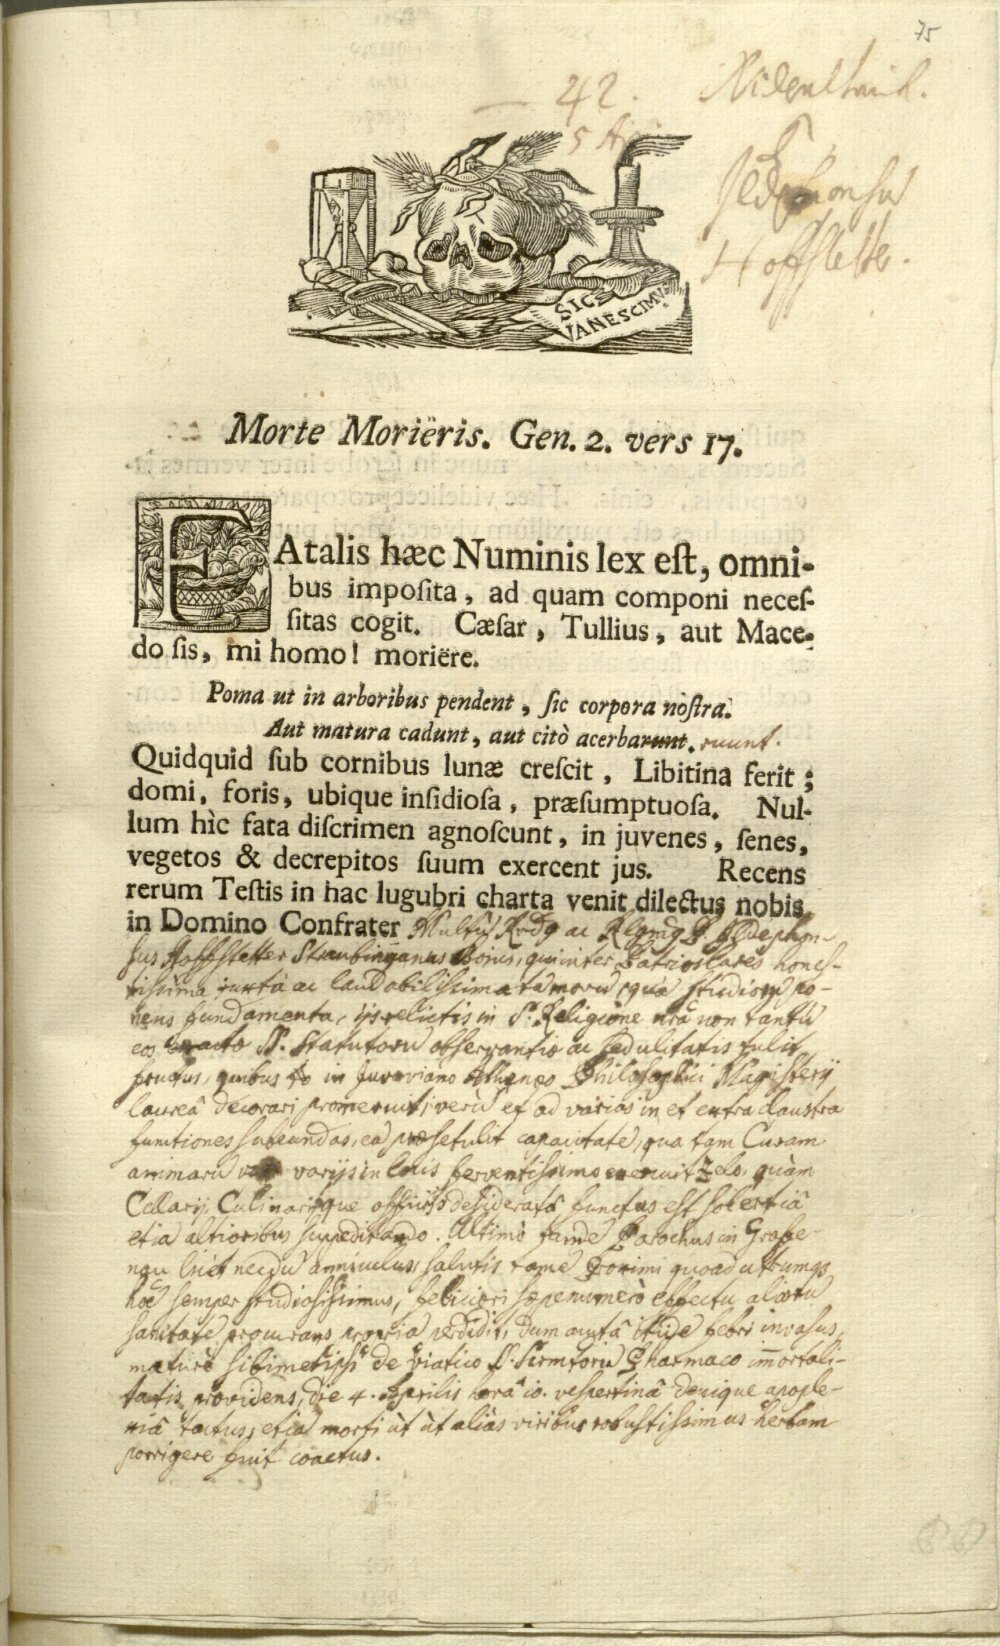 75
42.
5 Apr.
Hoffstetter.
SIC
VANESCIMUS
Morte Moriëris. Gen. 2. vers 17.
FAtalis hæc Numinis lex est, omni-
bus imposita, ad quam componi neces-
sitas cogit. Cæsar, Tullius, aut Mace-
do sis, mi homo! moriëre.
Poma ut in arboribus pendent, sic corpora nostra.
Aut matura cadunt, aut citò acerbarunt. ruunt.
Quidquid sub cornibus lunæ crescit, Libitina ferit;
domi, foris, ubique insidiosa, præsumptuosa. Nul-
lum hìc fata discrimen agnoscunt, in juvenes, senes,
vegetos & decrepitos suum exercent jus. Recens
rerum Testis in hac lugubri charta venit dilectus nobis
in Domino Confrater Multū Rvdq ac Rlgmq P. Ildephon-
sus Hoffstetter Straubinganus Boius, qui inter Patrios Lares hones-
tissima juxtà ac laudabilissima tā morū, quā studiorū po-
nens fundamenta, ijs relictis in S. Religione nrâ non tantū
eos exacto SS. Statutorū observantiæ ac sedulitatis tulit
fructus, quibus in Juvaviano Athenæo Philosophici Magisterij
laureâ decorari promeruit, verū et ad varias in et extra claustra
functiones subeundas, eā præsetulit capacitate, qua tam Curam
animarū varijs in locis ferventissimo exercuit Zelo, quàm
Cellarij, Culinarijque officijs desideratâ functus est solertiâ
etiā altioribus suppeditando. Ultimò tandē Parochus in Grafe-
nau licet necdū anniculus, salutis tamē Proximi quoad utrumq3
hoc semper studiosissimus, feliciori sæpenumerò effectu aliorū
sanitatē procurans propriā perdidit, dum acutâ itidē febri invasus,
maturè sibimetipsi de viatico S. Sacrmtorū Pharmaco immortali-
tatis providens, die 4. Aprilis horâ 10. vespertinâ deniqve apople-
xiâ tactus, etiā morti ùt ùt aliàs viribus robustissimus herbam
porrigere fuit coactus.